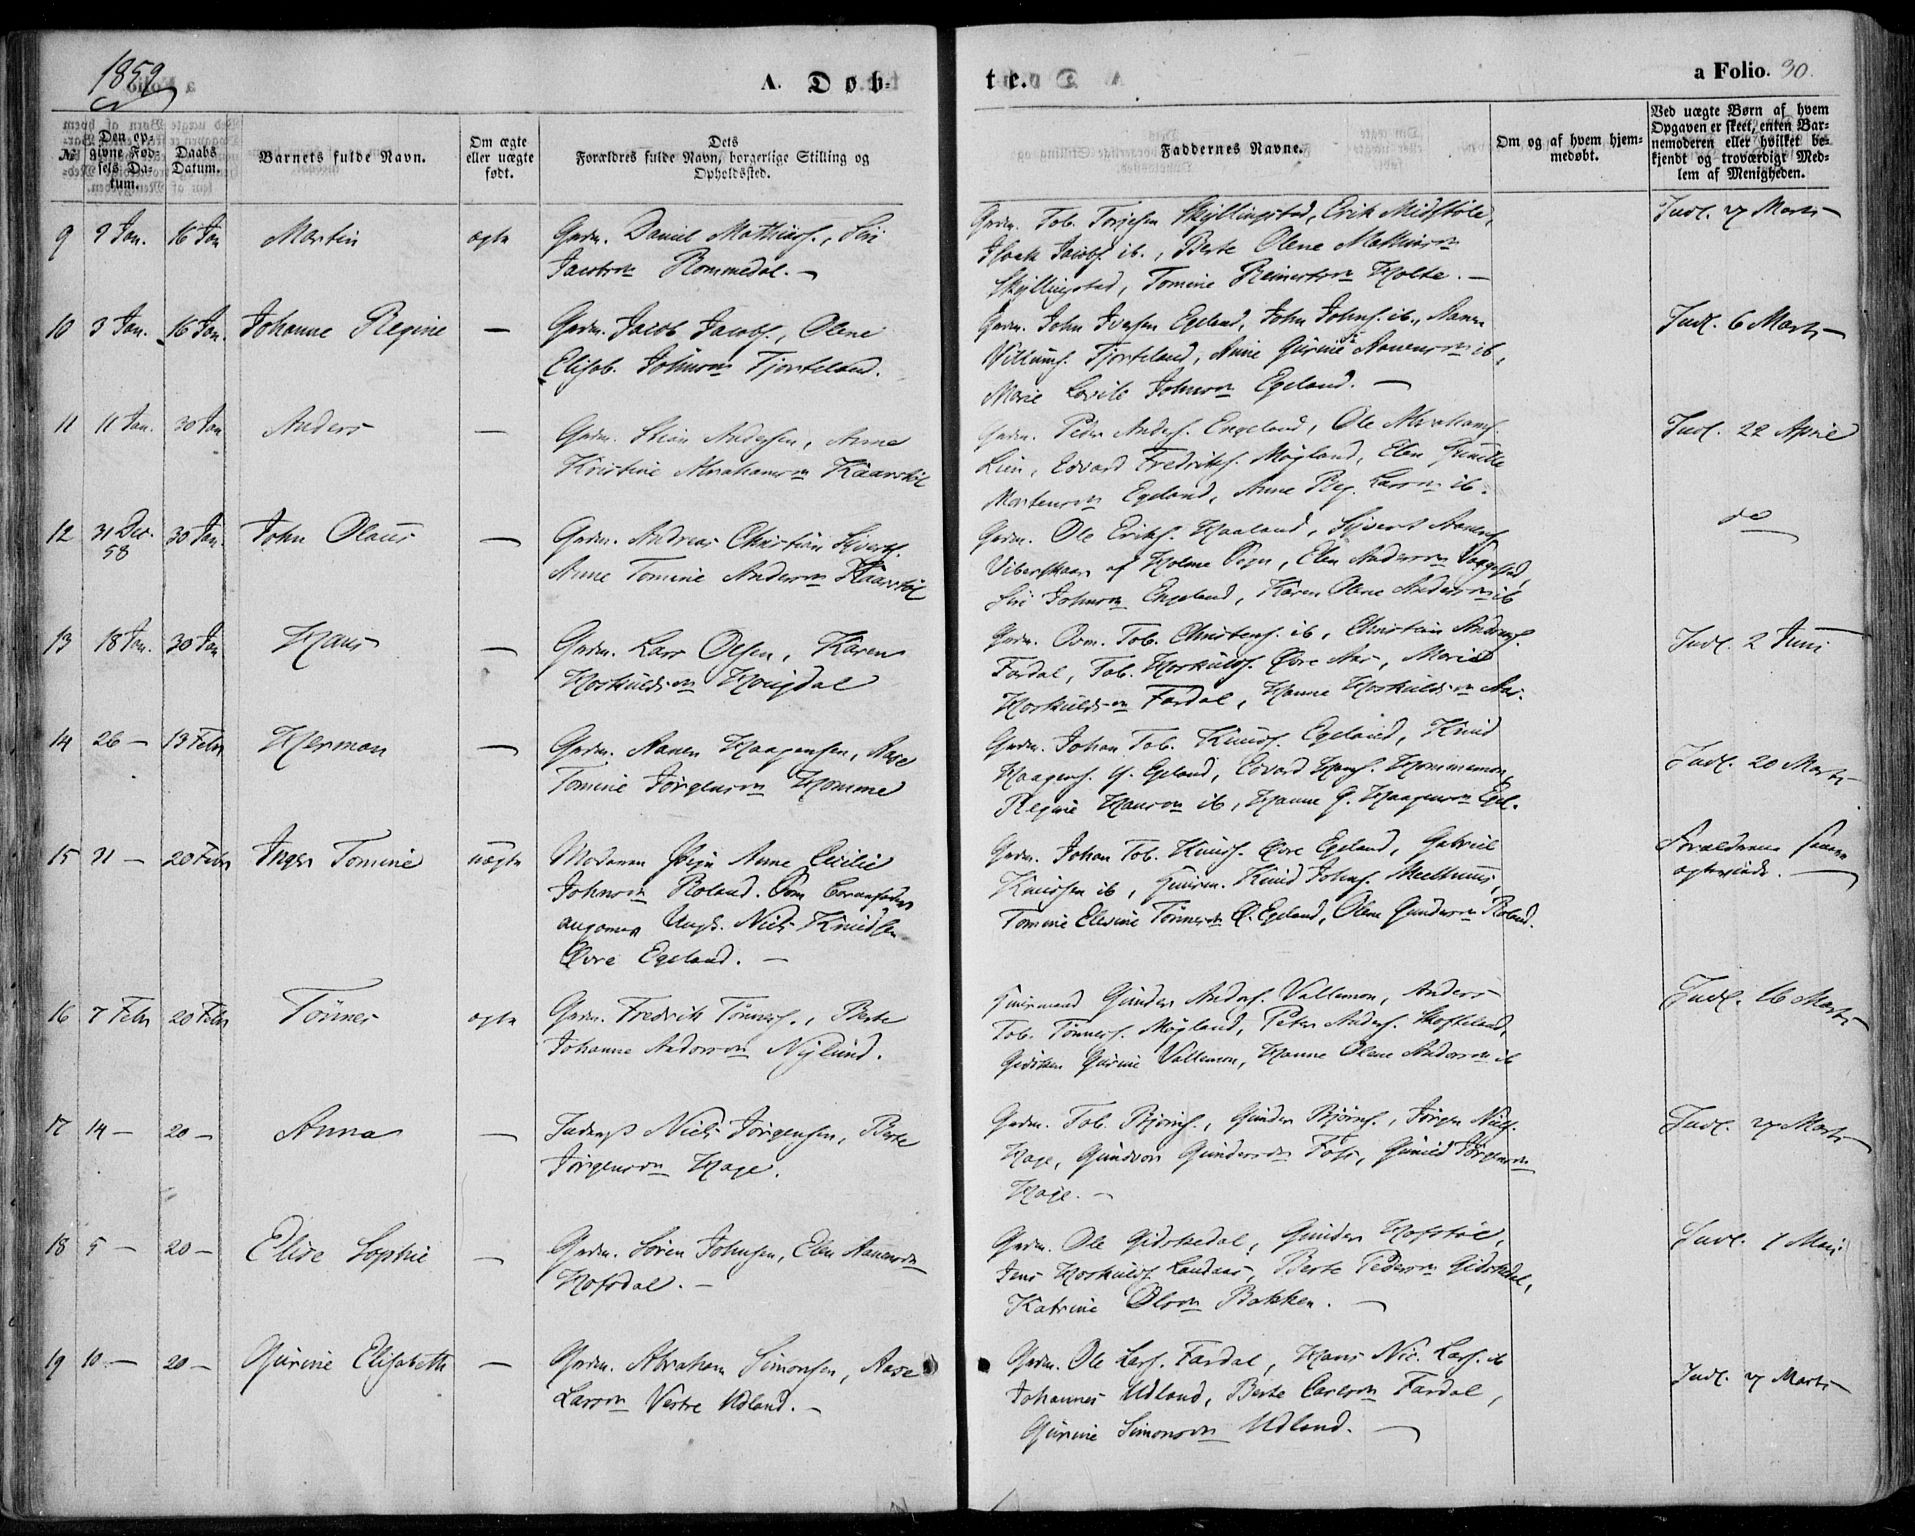 1859
A. Døb-
te.
a Folio. 30.
No
Den op-
givne Fød-
sels Da-
tum.
Daabs
Datum.
Barnets fulde Navn.
Om ægte
eller uægte
født.
Dets
Forældres fulde Navn, borgerlige Stilling og
Opholdssted.
Faddernes Navne.
Om og af hvem hjem-
medøbt.
Ved uægte Børn af hvem
Opgaven er skeet, enten Bar-
nemoderen eller hvilket be-
kjendt og troværdigt Med-
lem af Menigheden.
9 9 Jan. 16 Jan Martin ægte
Grdm. Daniel Mathias., Siri
Jacobsn Rommedal. —
Grdm. Tob. Torjesen Skyllingstad, Erik Midstøle,
Isaak Jacobs. ib., Berte Olene Mathiasn
Skyllingstad, Tomine Reinertsn Holte. —
Indl. 7 Marts
10 3 Jan. 16 Jan. Johanne Regine —
Grdm. Jacob Jacobs., Olene
Elisab. Johnsn Tjorteland.
Grdm. John Iversen Egeland, John Johns. ib., Aanen
Villums. Tjorteland, Anne Gurine Aanensn ib,
Marie Lovise Johnsn Egeland. —
Indl. 6 Marts
11 11 Jan. 30 Jan Anders —
Grdm. Stian Andersen, Anne
Kristine Abrahamsn Kaarstøl
Grdm. Peder Anders. Engeland, Ole Abrahams.
Lien, Edvard Fredriks. Møgland, Elen Gunille
Mortensn Egeland, Anne Reg. Larsn ib.
Indl. 22 April
12 31 Dec. 58 30 Jan. John Olaus —
Grdm. Andreas Christian Siverts.
Anne Tomine Andersn Kaarstøl
Grdm. Ole Eriks. Haaland, Sivert Aanens.
Viberskaar af Holme Sogn, Elen Andersn
Siri Johnsn Engeland, Karen Olene Andersn ib
do
13 18 Jan. 30 Jan Hans —
Grdm. Lars Olsen, Karen
Horkuldsn Hougdal
Grdm. Tob. Christens. ib, Christian Anders.
Fardal, Tob. Horkulds. Øvre Aas, Marie
Horkuldsn Fardal, Hanne Horkuldsn Aas.
Indl. 2 Juni
14 26 — 13 Febr Herman —
Grdm. Aanen Haagensen, Aase
Tomine Jørgensn Homme
Grdm. Johan Tob. Knuds. Egeland, Knud
Haagens. Y. Egeland, Edvard Hans. Hommemon,
Regine Hansn ib, Hanne G. Haagensn Egel.
Indl. 20 Marts
15 31 — 20 Febr Inger Tomine uægte
Moderen Pige Anne Cecilie
Johnsn Roland. Som Barnefader
angaves Ungk. Niels Knudsen
Øvre Egeland. —
Grdm. Johan Tob. Knuds. Øvre Egeland, Gabriel
Knudsen ib, Knud Johns. Meelhuus,
Tomine Elesine Tønnesn Ø. Egeland, Olene Gundersn Roland.
Forældrene senere
ægteviede. —
16 7 Febr 20 Febr Tønnes ægte
Grdm. Fredrik Tønnes., Berte
Johanne Andersn Nylund.
Gunder Anders. Vallemon, Anders
Tob. Tønnes. Møgland, Peter Anders. Skofteland,
Gurine Vallemon, Hanne Olene Andersn ib
Indl. 16 Marts
17 14 — 20 — Anna —
Inderst Niels Jørgensen, Berte
Jørgensn Hage.
Grdm. Tob. Bjørns., Gunder Bjørns., Jørgen Niels.
Hage, Gundvor Gundersn Foss, Gunild Jørgensn
Hage. —
Indl. 7 Marts
18 5 — 20 — Elise Sophie —
Grdm. Søren Johnsen, Elen Aanensn
Hofsdal. —
Grdm. Ole Gidskedal, Gunder Hofstøl,
Jens Horkulds. Landaas, Berte Pedersn Gidskedal,
Katrine Olsn Bakken. —
Indl. 1 Mai
19 10 — 20 — Gurine Elisabeth —
Grdm. Abraham Simonsen, Aase
Larsn Vestre Udland. —
Grdm. Ole Lars. Fardal, Hans Nic. Lars. ib
Johannes Udland, Berte Carlsn Fardal,
Gurine Simonsn Udland. —
Indl. 7 Marts